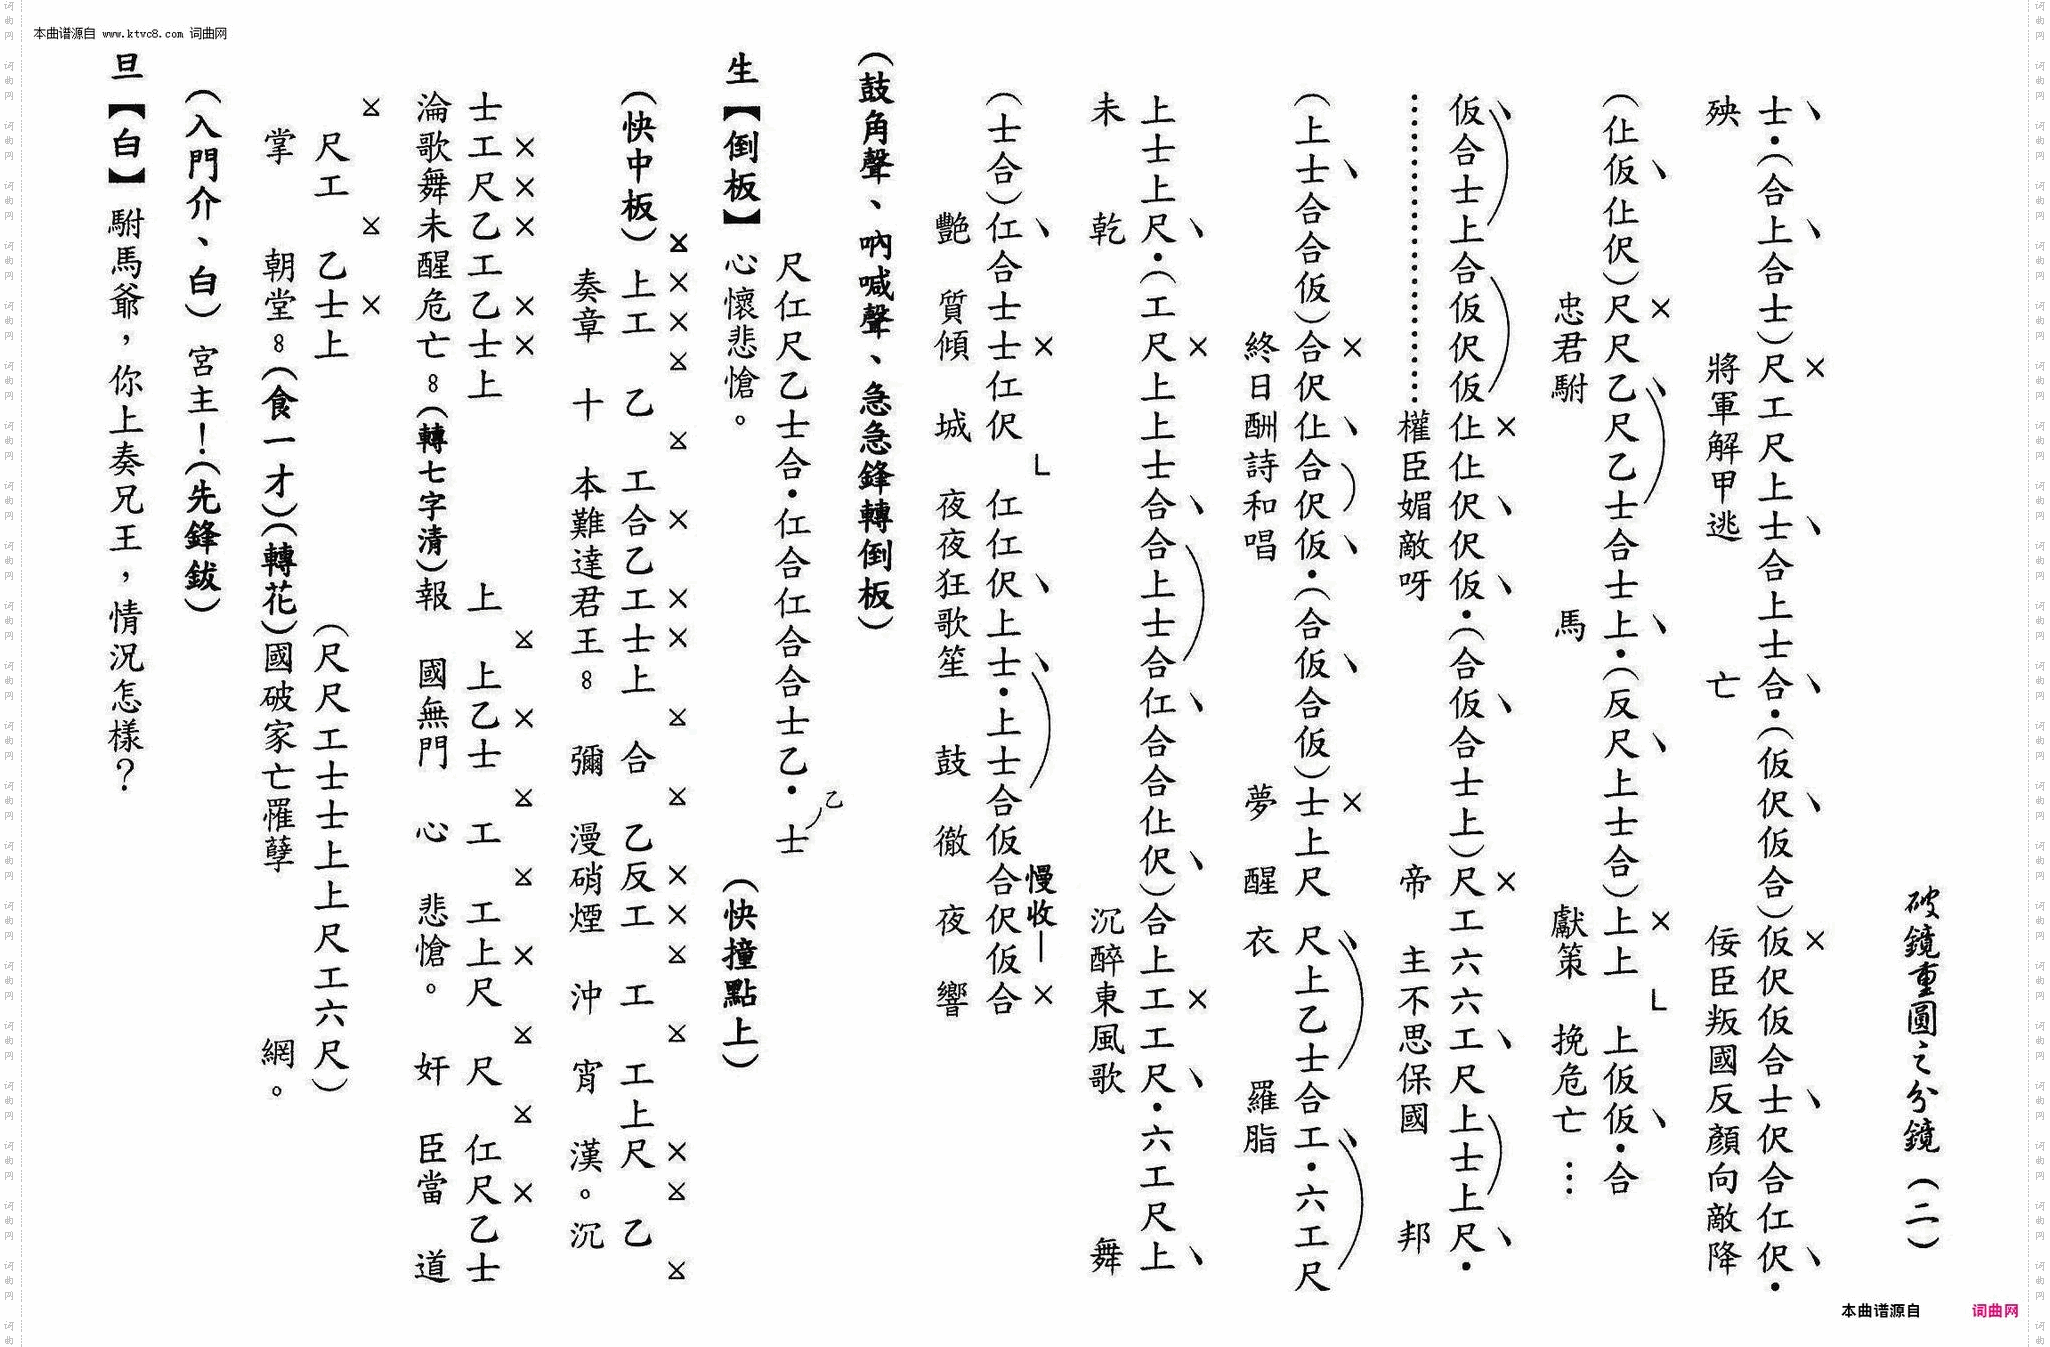 本曲谱源自 www.ktvc8.com 词曲网
破鏡重圓之分鏡（二）
士•（合上合士）尺工尺上士合上士合•（仮伬仮合）仮伬仮合士伬合仜伬•
殃 將軍解甲逃 亡 佞臣叛國反顏向敵降
（仩仮仩伬）尺尺乙尺乙士合士上•（反尺上士合）上上 L 上仮仮•合
忠君駙 馬 獻策 挽危亡…
仮合士上合仮伬仮仩仩伬伬仮•（合仮合士上）尺工六六工尺上士上尺•
權臣媚敵呀 帝 主不思保國 邦
（上士合合仮）合伬仩合伬仮•（合仮合仮）士上尺 尺上乙士合工•六工尺
終日酬詩和唱 夢 醒 衣 羅脂
上士上尺•（工尺上上士合合上士合仜合合仩伬）合上工工尺•六工尺上
未 乾 沉醉東風歌 舞
（士合）仜合士士仜伬 L 仜仜伬上士•上士合仮合伬仮合
慢收—
艷 質傾 城 夜夜狂歌笙 鼓 徹 夜 響
（鼓角聲、吶喊聲、急急鋒轉倒板）
尺仜尺乙士合•仜合仜合合士乙•乙士
生【倒板】心懷悲愴。（快撞點上）
（快中板）上工 乙 工合乙工士上 合 乙反工 工 工上尺 乙
奏章 十 本難達君王。。 彌 漫硝煙 沖 宵 漢。沉
士工尺乙工乙士上 上 上乙士 工 工上尺 尺 仜尺乙士
淪歌舞未醒危亡。。（轉七字清）報 國無門 心 悲愴。 奸 臣當 道
尺工 乙士上 （尺尺工士士上上尺工六尺）
掌 朝堂。。（食一才）（轉花）國破家亡罹孽 網。
（入門介、白）宮主！（先鋒鈸）
旦【白】駙馬爺，你上奏兄王，情況怎樣？
本曲谱源自 词曲网